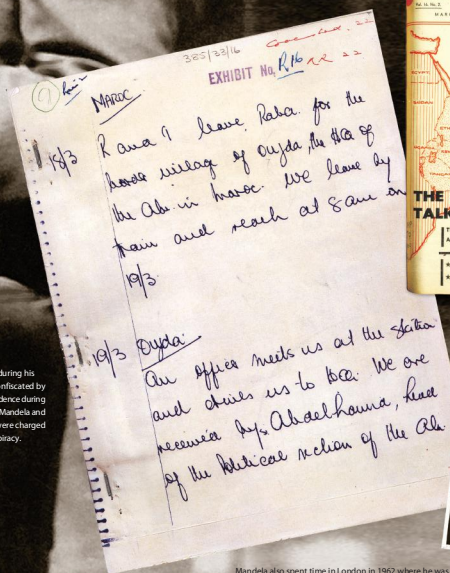 385/33/16
EXHIBIT No. R16
9
MAROC
18/3 R and I leave Raba for the
village of Oujda, the HQ of
the ALN in Maroc. We leave by
train and reach at 8 am on
19/3.
19/3 Oujda
An officer meets us at the station
and drives us to HQ. We are
received by Abdelhamid, head
of the Political section of the ALN.
during his
nfiscated by
dence during
Mandela and
were charged
piracy.
Vol. 16. No. 8.
MAR
EGYPT
SUDAN
THE
TALK
Mandela also spent time in London in 1962 where he was